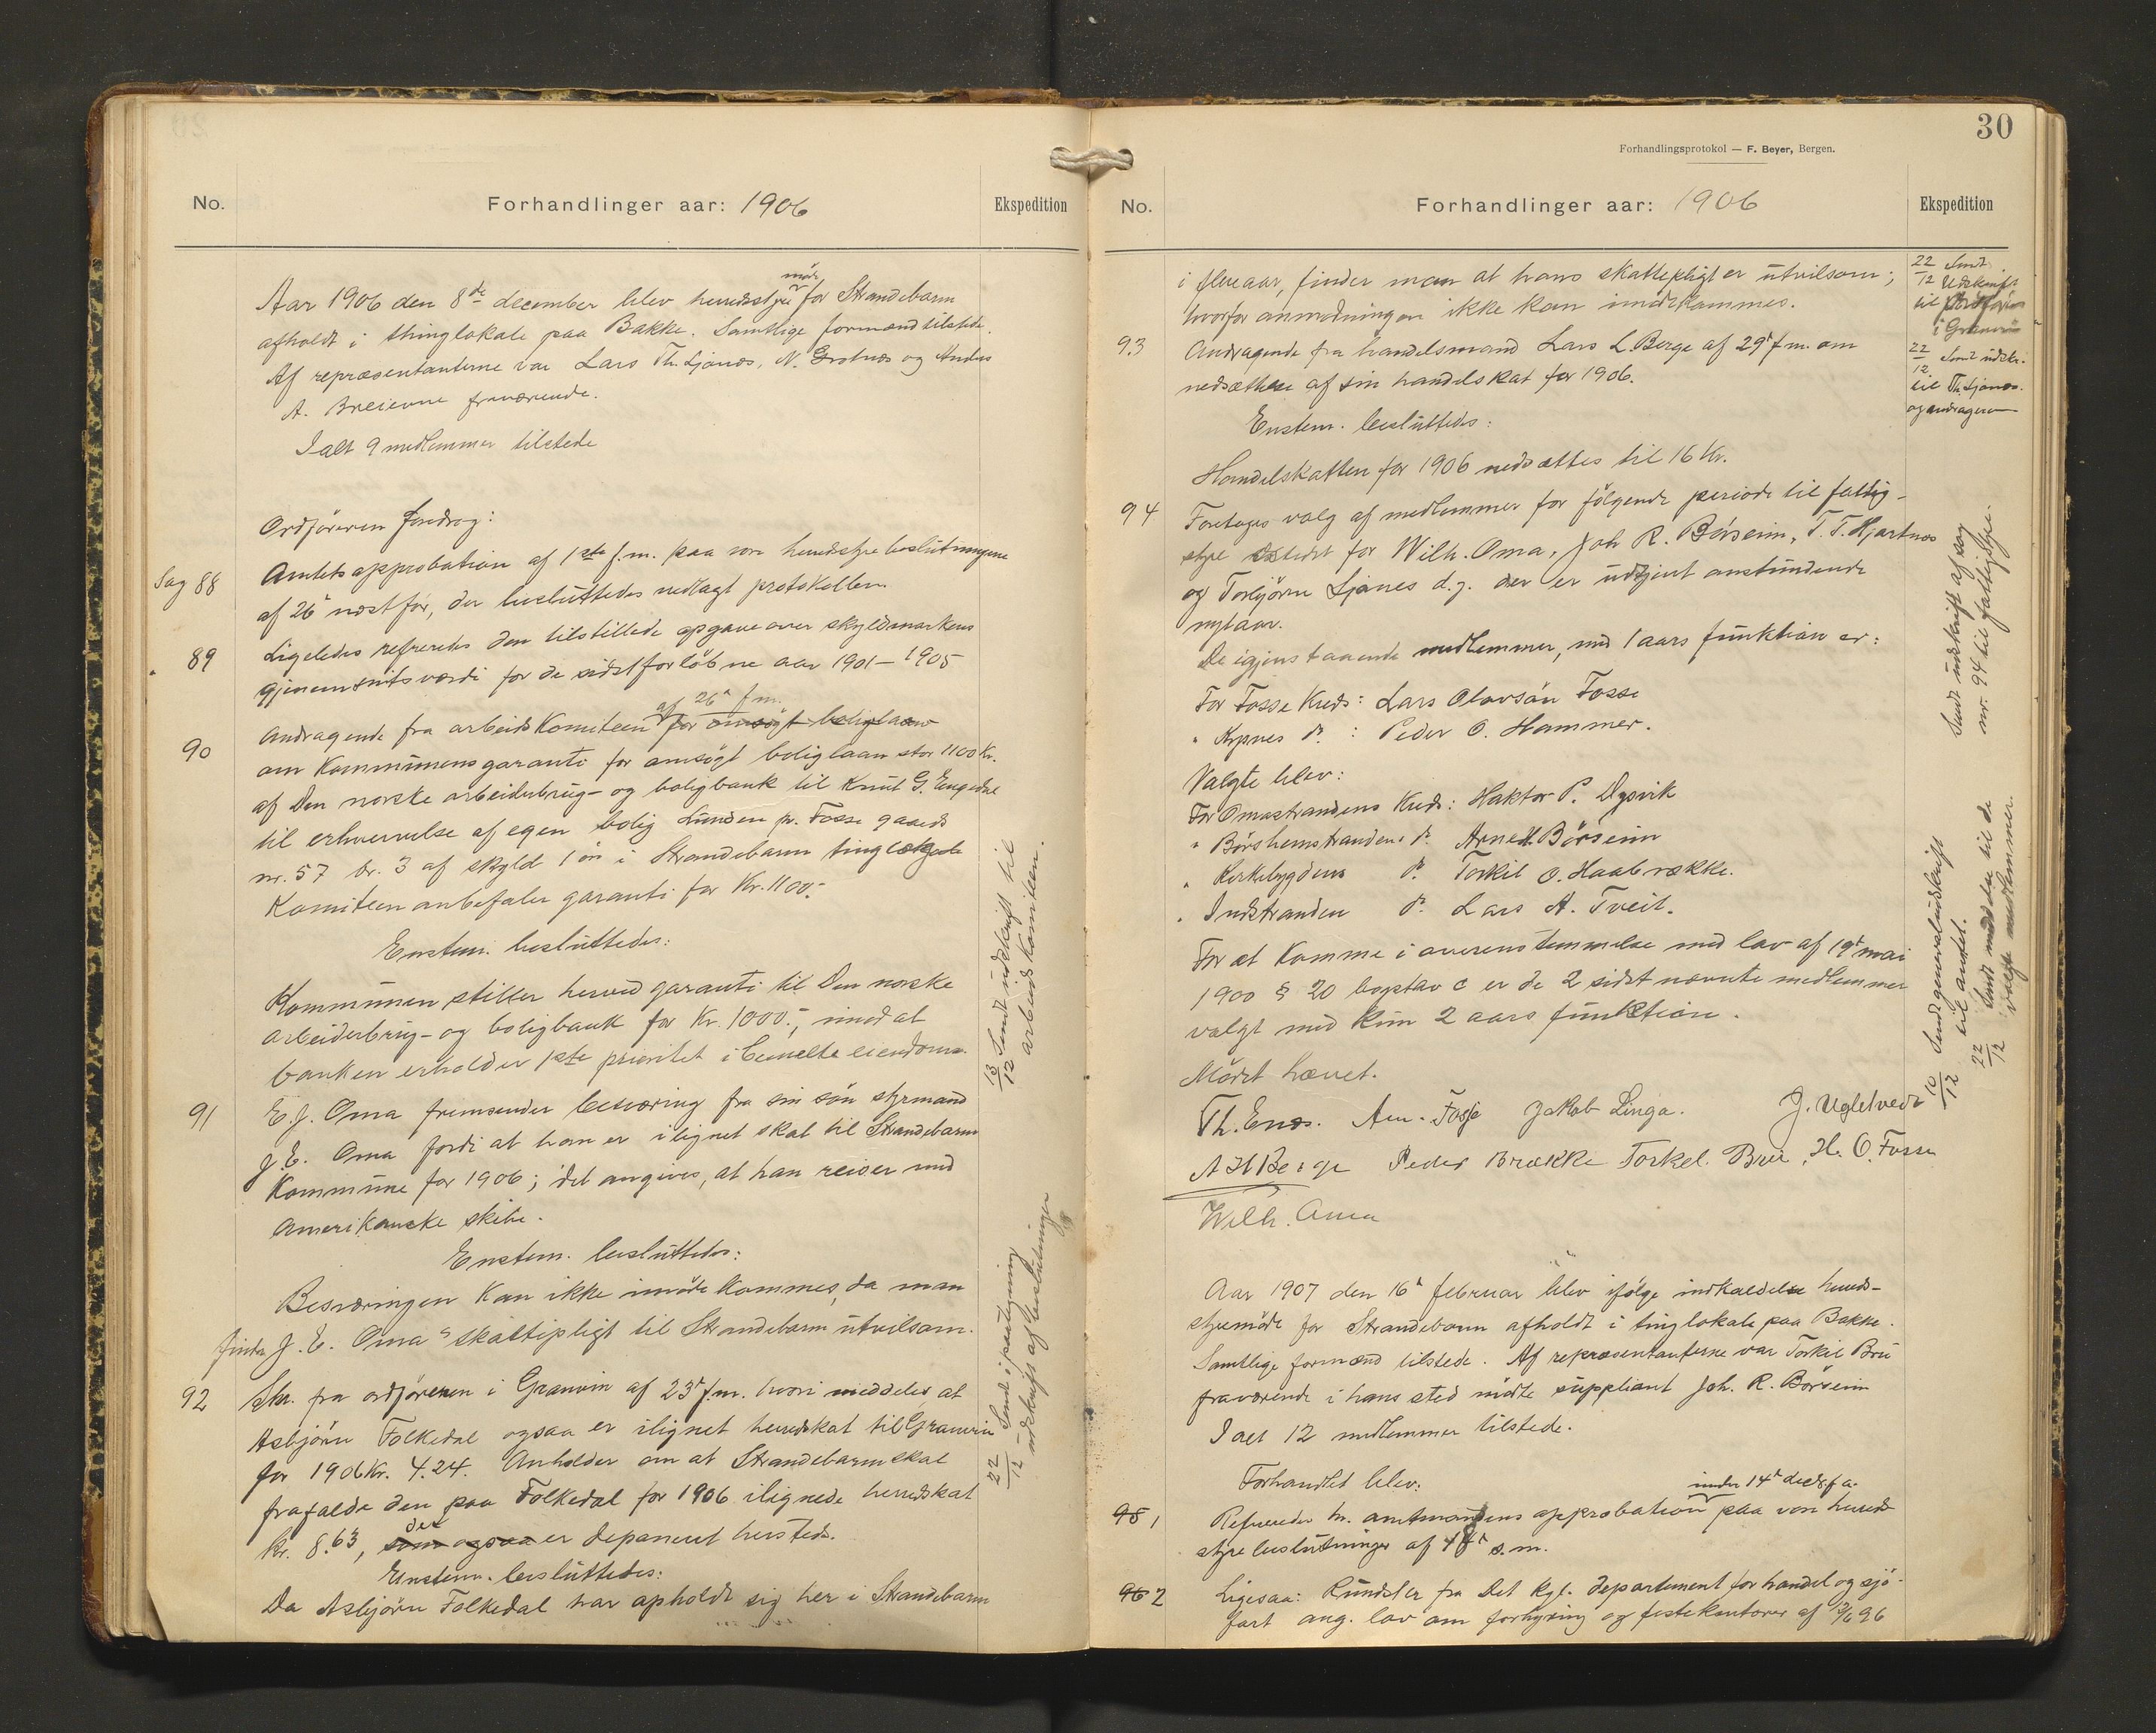 No.
Forhandlinger aar: 1906
Ekspedition
Aar 1906 den 8de december blev herredsstyremöde for Strandebarm
afholdt i thinglokale paa Bakke. Samtlige formænd tilstede.
Af repræsentanterne var Lars Th. Ljonæs, N. og Anders
A. Breievne fraværende.
I alt 9 medlemmer tilstede
Ordföreren foredrog:
Sag 88
Amtets approbation af 1ste f.m. paa vore herredsstyrebeslutningene
af 26de næst för, der besluttedes vedlagt protokollen.
89
Ligeledes refreredes den tilstillede opgave over skyldmarkens
gjenemsnitsværdi for de sidst forlöbne aar 1901-1905
90
Andragende fra arbeidskomiteen af 26de f.m. for ansögt boliglaan
om Kommunens garanti for ansögt boliglaan stor 1100 Kr.
af Den norske arbeiderbrug- og boligbank til Knut G. Engedal
til erhvervelse af egen bolig Lunden pr. Fosse gaards
nr. 57 br. 3 af skyld 1 öre i Strandebarm tinglag
Komiteen anbefaler garanti for Kr. 1100.-
Enstem. besluttedes:
Kommunen stiller herved garanti til Den norske
arbeiderbrug- og boligbank for Kr. 1000.-, imod at
banken erholder 1ste prioritet i bemelte eiendom.
13/12 Sendt udskrift til
arbeidskomiteen.
91
E. J. Oma fremsender besværing fra sin sön styrmand
J. E. Oma fordi at han er ilignet skat til Strandebarm
Kommune for 1906; det angives, at han reiser med
Amerikanske skibe.
Enstem. besluttedes:
Besværingen kan ikke imödekommes, da man
finder J. E. Oma's skattepligt til Strandebarm utvilsom.
22/12 Sendt
udskrift af beslutningen
92
Skr. fra ordföreren i Granvin af 23de f.m. hvori meddeles, at
Asbjörn Folkedal ogsaa er ilignet herredskat til Granvin
for 1906 Kr. 4.24. Anholder om at Strandebarm skal
frafalde den paa Folkedal for 1906 ilignede herredskat
kr. 8.63, som ogsaa der er deponeret hersteds.
Enstem. besluttedes:
Da Asbjörn Folkedal har opholdt sig her i Strandebarm
30
Forhandlingsprotokol — F. Beyer, Bergen.
No.
Forhandlinger aar: 1906
Ekspedition
i flere aar, finder man at hans skattepligt er utvilsom;
hvorfor anmodningen ikke kan imödekommes.
22/12 Sendt
Udskrift
til ordför
i Granvin
93
Andragende fra handelsmand Lars L. Berge af 29de f.m. om
nedsættelse af sin handelskat for 1906.
22/12 Sendt udskr.
til Th. Ljonæs.
og andrageren
Enstem. besluttedes:
Handelskatten for 1906 nedsættes til 16 Kr.
94
Foretages valg af medlemmer for fölgende periode til fattig-
styre istedet for Wilh. Oma, Joh R. Börseim, T. T. Hjartnes
og Torbjörn Ljones d.y. der er udtjent anstundende
nytaar.
De igjenstaaende medlemmer, med 1 aars funktion er:
For Fosse Kreds: Lars Olavsön Fosse
" Kypnes Do: Peder O. Hammer.
Valgte blev:
For Omastrandens Kreds: Haktor P. Dysvik
" Börsheimstrandens Do. Arne Börseim
" Kirkebygdens Do. Torkil O. Haabrække.
" Indstranden Do. Lars A. Tveit.
For at komme i overenstemmelse med lov af 19de mai
1900 § 20 bogstav c er de 2 sidst nævnte medlemmer
valgt med kun 2 aars funktion.
Mödet hævet.
Sendt udskrift af sag
nr. 94 til fattigstyre.
10/12 Sendt generaludskrift
til amtet.
22/12 Sendt meddel. til de
valgte medlemmer.
Th. Enæs. Am. Fosse Jakob Linga. J. Ugletvedt
A H Berge Peder Brække Torkel Brei, H. O. Fosse
Wilh. Oma
Aar 1907 den 16de februar blev ifölge indkaldelse herreds-
styremöde for Strandebarm afholdt i tinglokale paa Bakke.
Samtlige formænd tilstede. Af repræsentanterne var Torkil Brei
fraværende i hans sted mödte suppliant Joh. R. Börseim
I alt 12 medlemmer tilstede.
Forhandlet blev:
95 1
Refereredes hr. amtmandens approbation under 14de decbr f.a. paa vore herreds
styrebeslutninger af 8de s.m.
96 2
Ligesaa: Rundskr fra Det kgl. departement for handel og sjö-
fart ang. lov om forhyring og festekontorer af 96